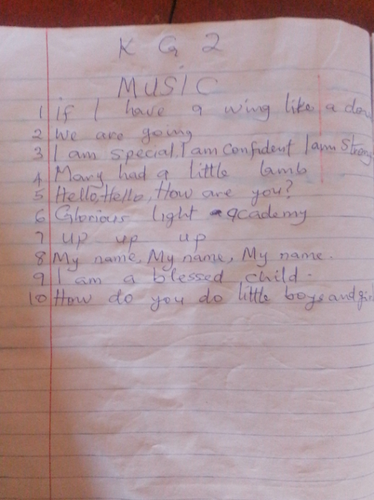 K G 2
MUSIC
1 If I have a wing like a
2 We are going
3 I am special, I am confident I am strong
4 Mary had a little lamb
5 Hello, Hello, How are you?
6 Glorious light academy
7 up up up
8 My name, My name, My name.
9 I am a blessed child.
10 How do you do little boys and